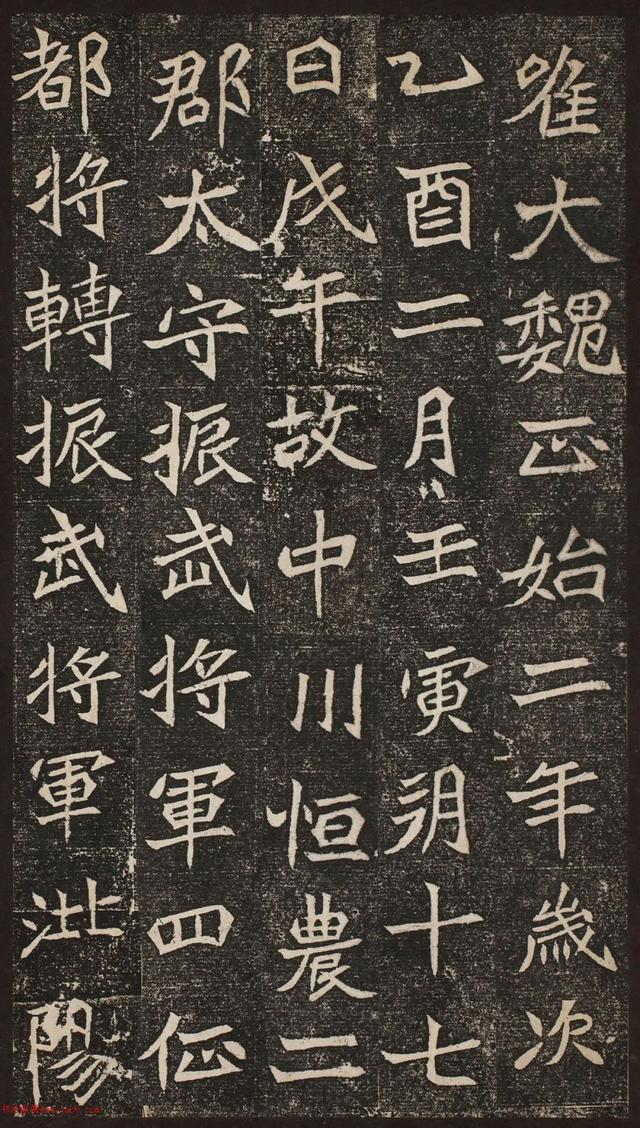 唯大魏正始二年歲次
乙酉二月壬寅朔十七
日戊午故中川恒農二
郡太守振武將軍四征
都將轉振武將軍沘陽